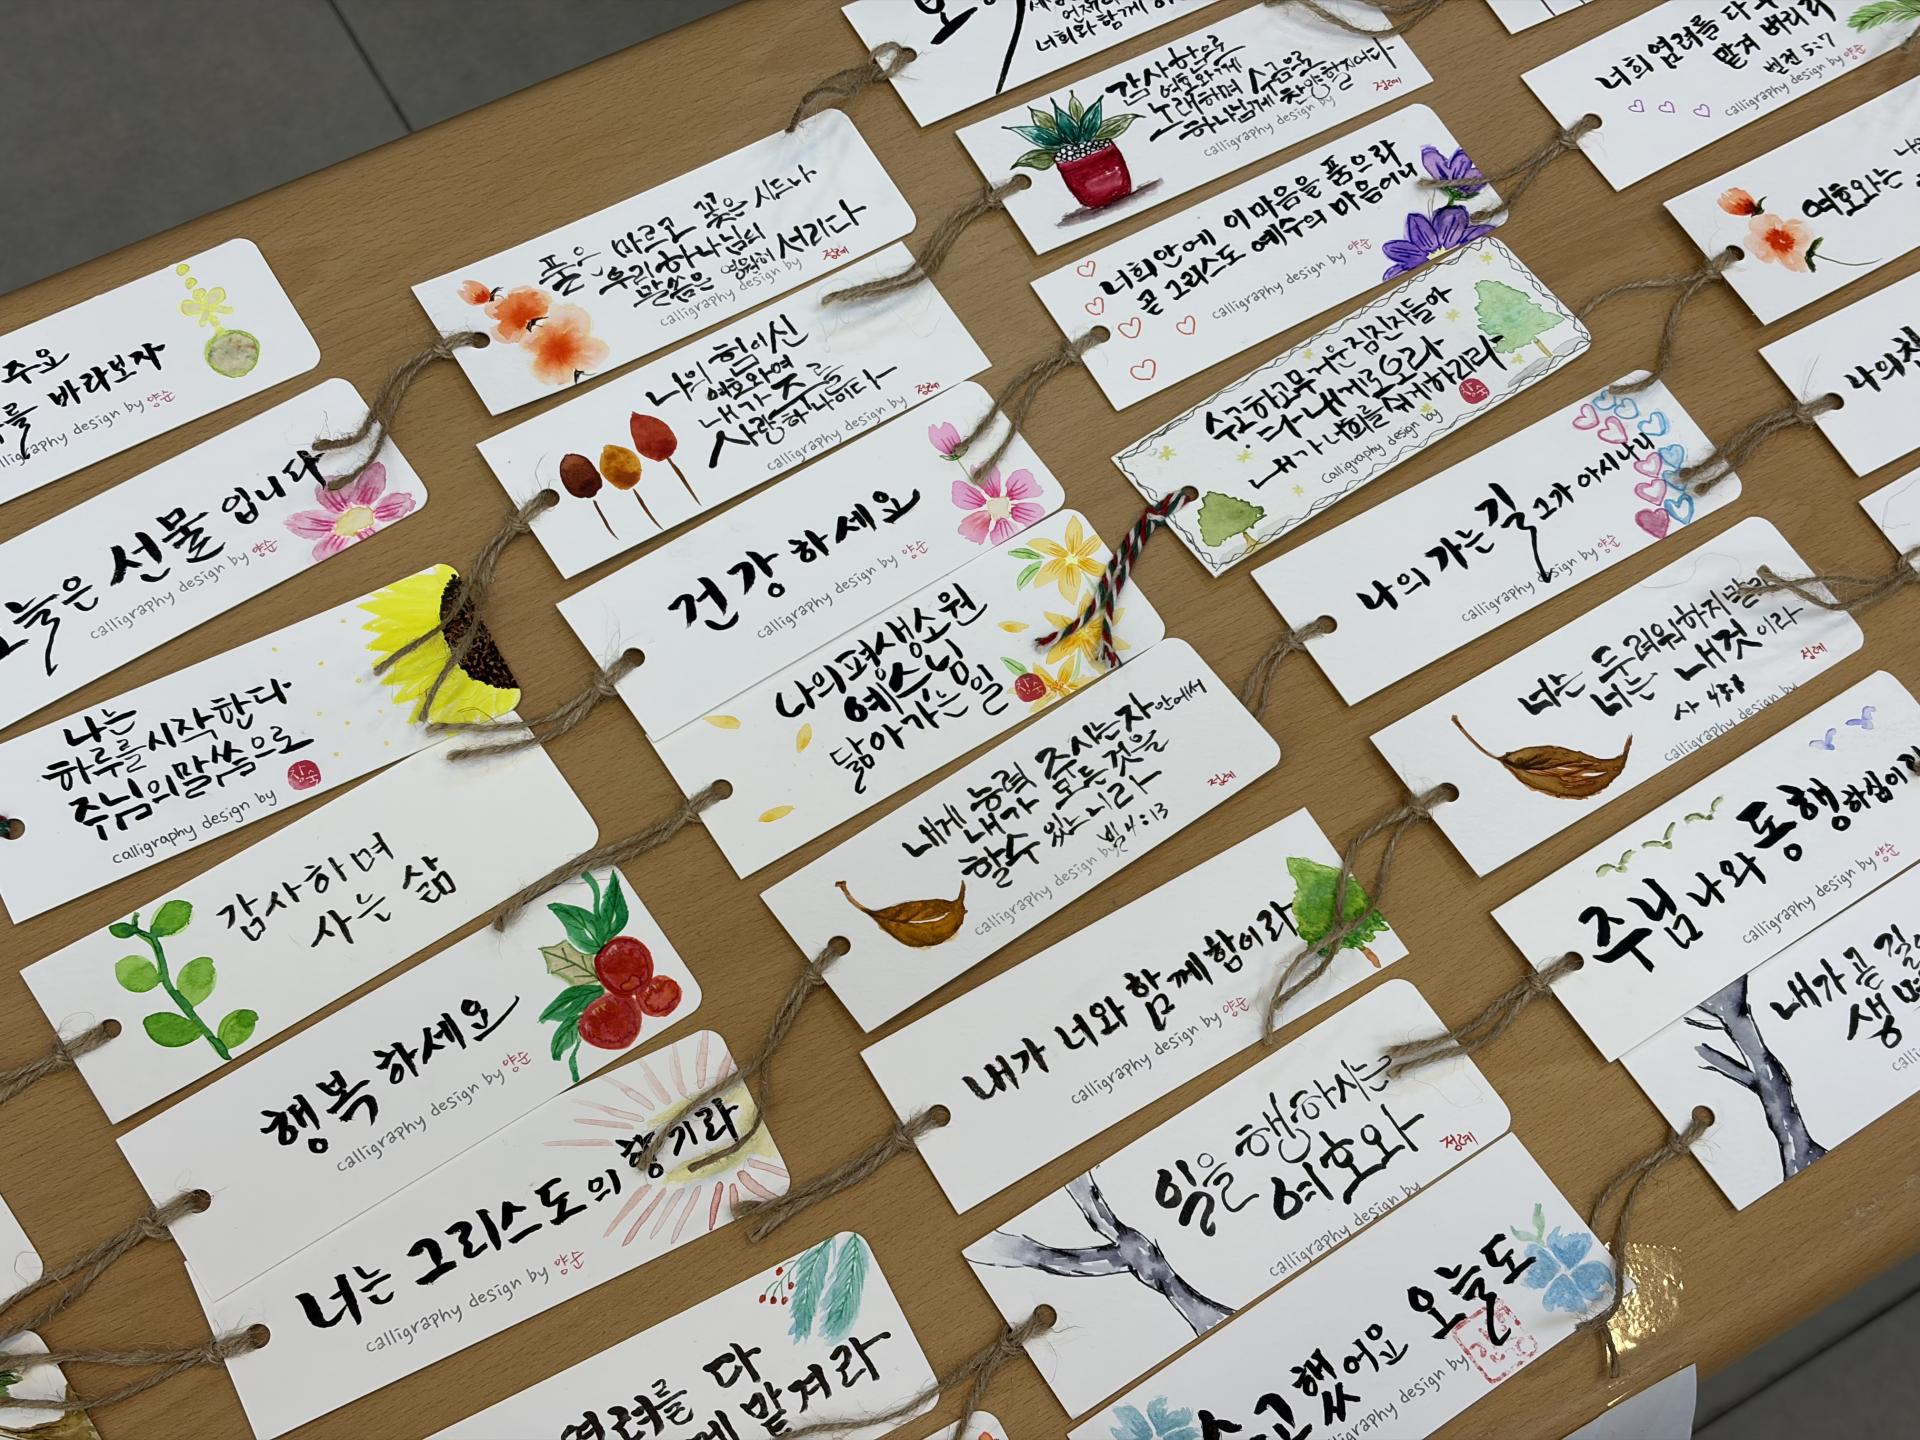 언제나
너희와 함께
감사함으로
여호와께
노래하며 수금으로
하나님께 찬양할지어다
calligraphy design by
정례
너희 염려를 다
맡겨 버리라
벧전 5:7
calligraphy design by 양순
풀은 마르고 꽃은 시드나
우리 하나님의
말씀은 영원히 서리라
calligraphy design by
정례
너희안에 이마음을 품으라
곧 그리스도 예수의 마음이니
calligraphy design by 양순
여호와는
주요
를 바라보자
calligraphy design by 양순
나의 힘이신
여호와여
내가 주를
사랑하나이다
calligraphy design by
정례
수고하고무거운짐진자들아
다 내게로 오라
내가 너희를 쉬게하리라
calligraphy design by
창숙
오늘은 선물 입니다
calligraphy design by 양순
건강 하세요
calligraphy design by 양순
나의 가는 길 그가 아시나니
calligraphy design by 양순
나는
하루를시작한다
주님의말씀으로
calligraphy design by
창숙
나의평생소원
예수님
닮아가는일
창숙
너는 두려워하지말라
너는 내것이라
사 43:1
calligraphy design by
정례
감사하며
사는 삶
내게 능력 주시는자 안에서
내가 모든것을
할수 있느니라
빌4:13
calligraphy design by
정례
주님 나와 동행하심이라
calligraphy design by 양순
행복 하세요
calligraphy design by 양순
내가 너와 함께함이라
calligraphy design by 양순
내가 곧 길
생명
너는 그리스도의 향기라
calligraphy design by 양순
일을 행하시는
여호와
calligraphy design by
정례
염려를 다
맡겨라
오늘도
수고했어요
calligraphy design by